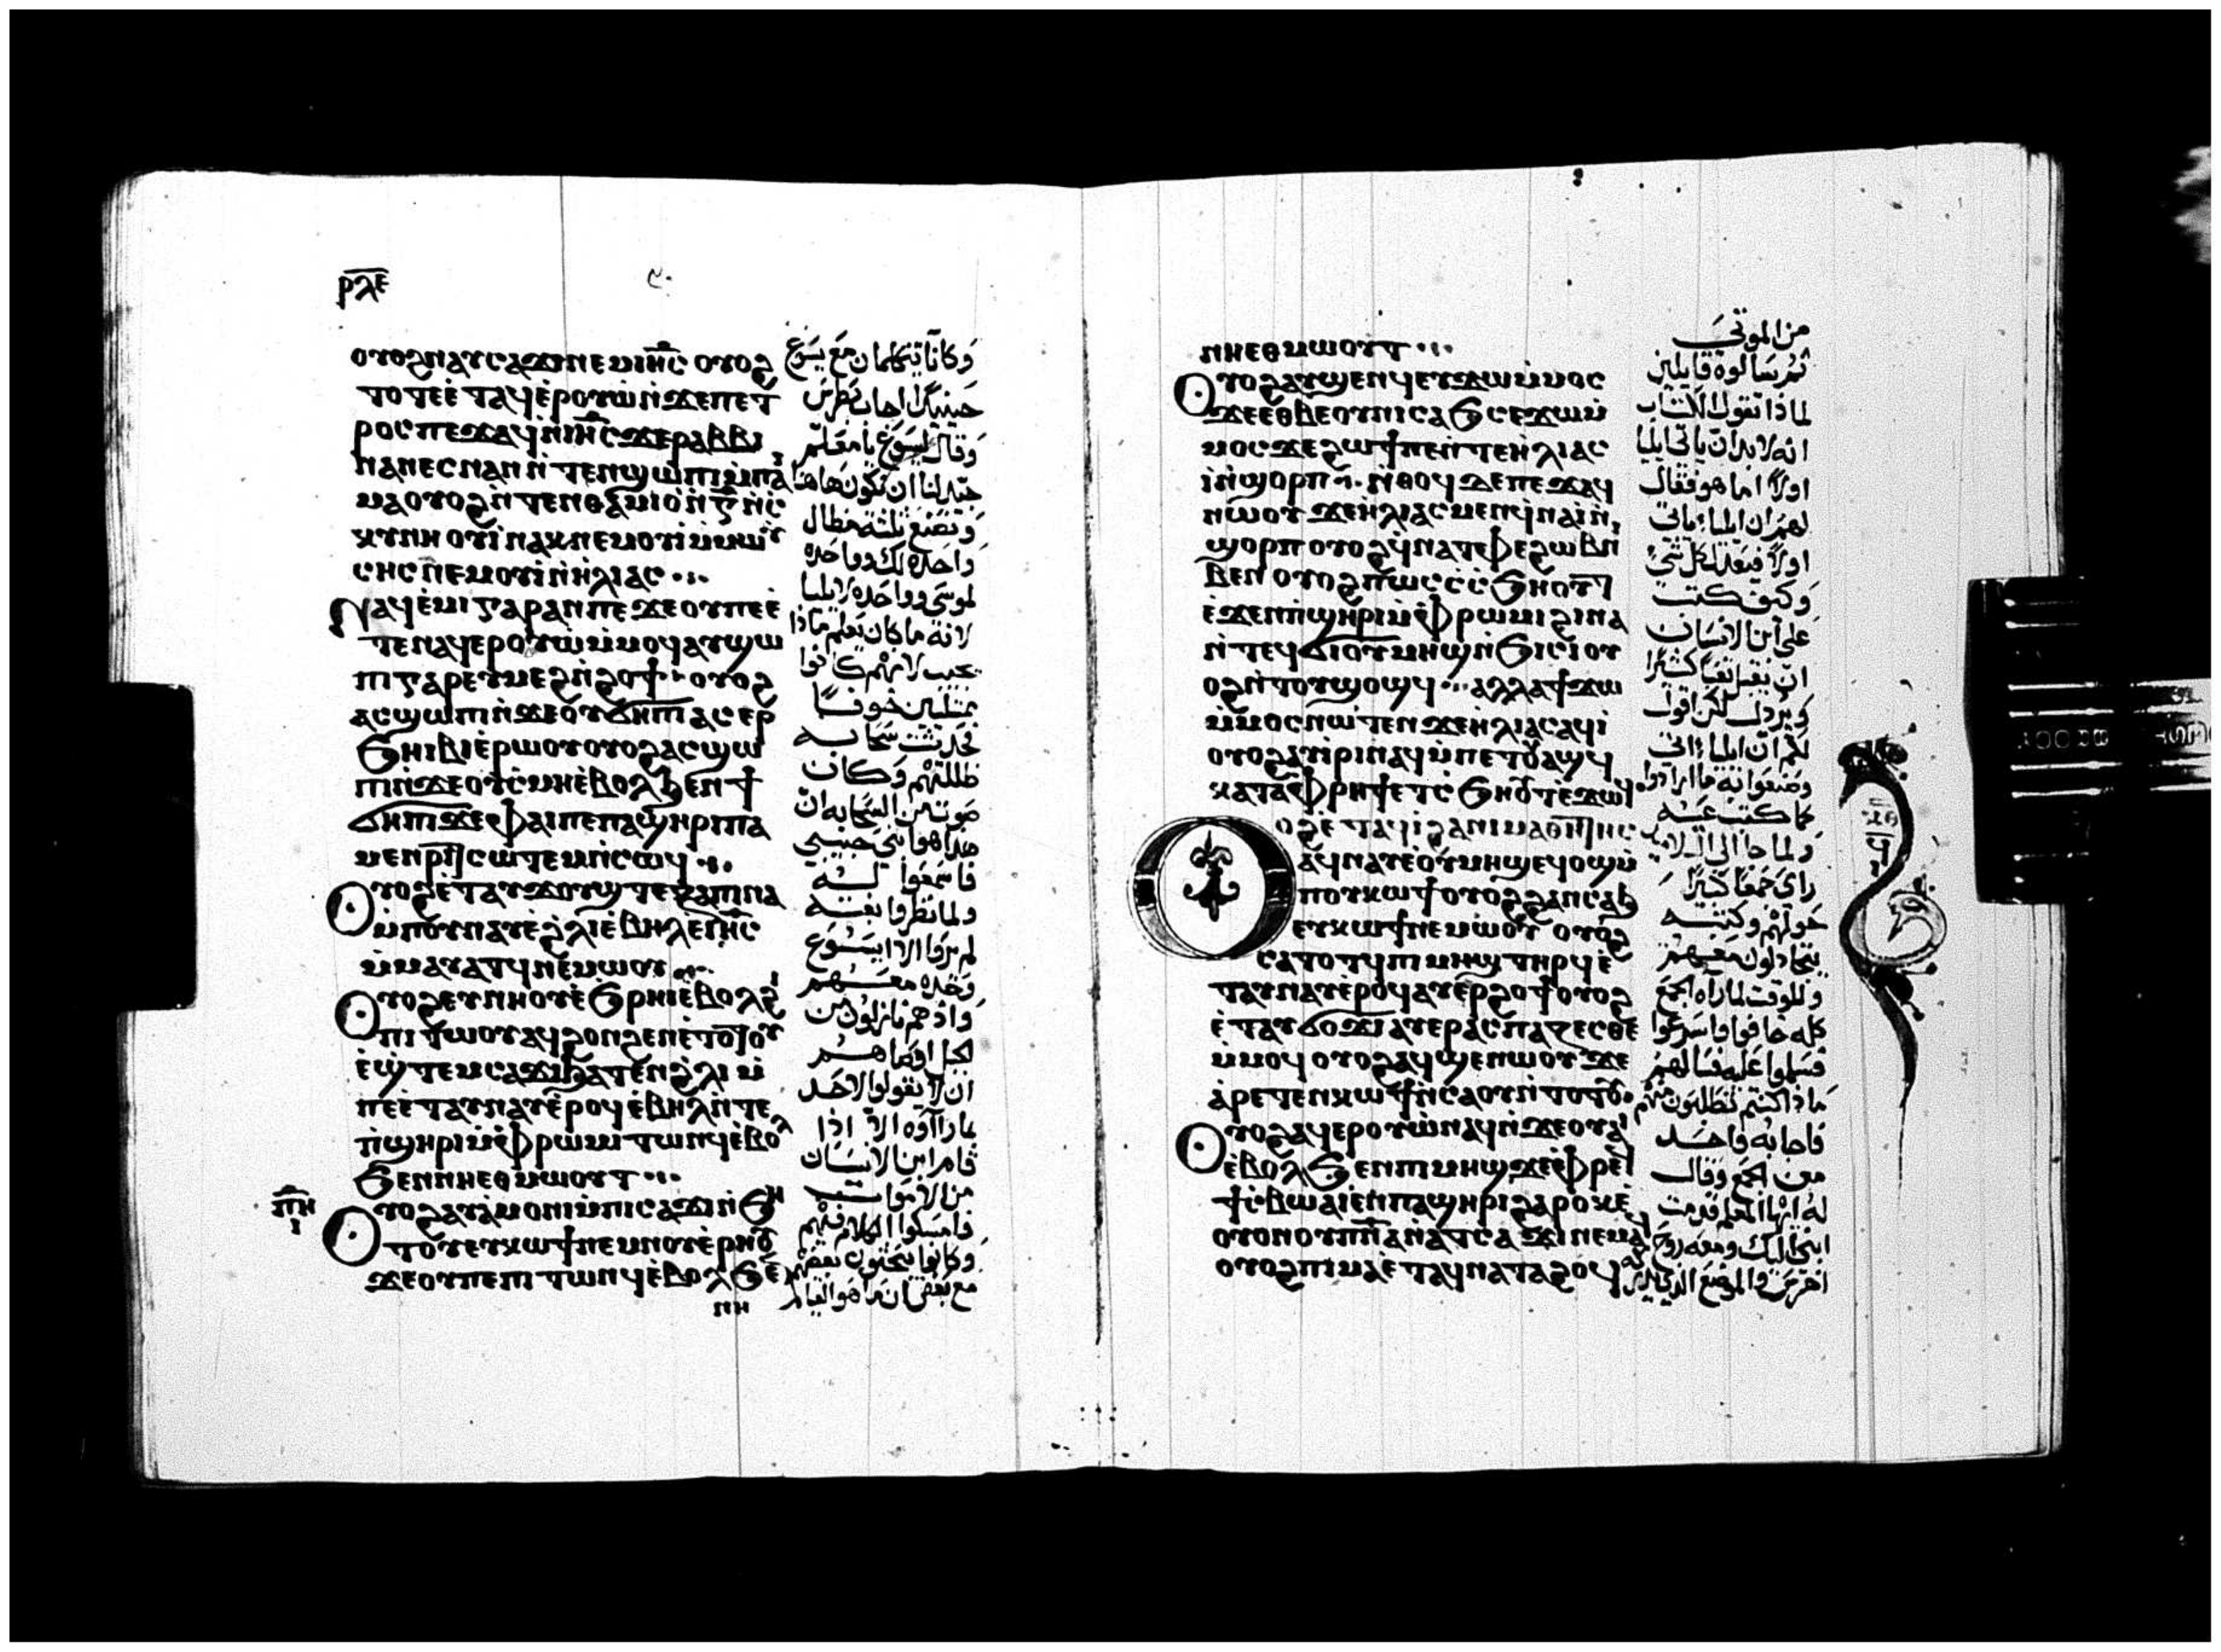 ⲣⲗⲉ
ⲟⲩⲟϩ ⲛⲁⲩⲥⲁϫⲓ ⲛⲉⲙ ⲓⲏ̅ⲥ̅ ⲟⲩⲟϩ
ⲧⲟⲧⲉ ⲉ̀ⲧⲁϥⲉ̀ⲣⲟⲩⲱ̀ ⲛ̀ϫⲉ ⲡⲉⲧ
ⲣⲟⲥ ⲡⲉϫⲁϥ ⲛ̀ⲓⲏ̅ⲥ̅ ϫⲉ ⲣⲁⲃⲃⲓ
ⲛⲁⲛⲉⲥ ⲛⲁⲛ ⲛ̀ⲧⲉⲛϣⲱⲡⲓ ⲙ̀ⲡⲁⲓ
ⲙⲁ ⲟⲩⲟϩ ⲛ̀ⲧⲉⲛⲑⲁⲙⲓⲟ̀ ⲛ̀ⲅ̅ ⲛ̀ⲥ
ⲕⲩⲛⲏ ⲟⲩⲓ̀ ⲛⲁⲕ ⲛⲉⲙ ⲟⲩⲓ̀ ⲙ̀ⲙⲱⲩ̀
ⲥⲏⲥ ⲛⲉⲙ ⲟⲩⲓ̀ ⲛ̀ⲏ̀ⲗⲓⲁⲥ
ⲛⲁϥⲉ̀ⲙⲓ ⲅⲁⲣ ⲁⲛ ⲡⲉ ϫⲉ ⲟⲩ ⲡⲉ ⲉ̀
ⲧⲉⲛⲁϥⲉⲣⲟⲩⲱ̀ ⲙ̀ⲙⲟϥ ⲁⲩϣⲱ
ⲡⲓ ⲅⲁⲣ ⲉⲩⲙⲉϩ ⲛ̀ϩⲟϯ ⲟⲩⲟϩ
ⲁⲥϣⲱⲡⲓ ⲛ̀ϫⲉ ⲟⲩϭⲏⲡⲓ ⲁⲥⲉⲣ
ϧⲏⲓⲃⲓ ⲉ̀ⲣⲱⲟⲩ ⲟⲩⲟϩ ⲁⲥϣⲱ
ⲡⲓ ⲛ̀ϫⲉ ⲟⲩⲥ̀ⲙⲏ ⲉ̀ⲃⲟⲗ ϧⲉⲛ ϯ
ϭⲏⲡⲓ ϫⲉ ⲫⲁⲓ ⲡⲉ ⲡⲁϣⲏⲣⲓ ⲡⲁ
ⲙⲉⲛⲣⲓⲧ ⲥⲱⲧⲉⲙ ⲛ̀ⲥⲱϥ
ⲟⲩⲟϩ ⲉ̀ⲧⲁⲩϫⲟⲩϣⲧ ⲉ̀ϩⲁⲡⲓⲛⲁ
ⲙ̀ⲡⲟⲩⲛⲁⲩ ⲉ̀ϩ̀ⲗⲓ ⲉ̀ⲃⲏⲗ ⲉ̀ⲓⲏ̅ⲥ̅
ⲙ̀ⲙⲁⲩⲁⲧϥ ⲛⲉⲙⲱⲟⲩ
ⲟⲩⲟϩ ⲉⲩⲛⲏⲟⲩ ⲉ̀ϧⲣⲏⲓ ⲉ̀ⲃⲟⲗ ϩⲓ
ⲡⲓⲧⲱⲟⲩ ⲁϥϩⲟⲛϩⲉⲛ ⲉ̀ⲧⲟⲧⲟⲩ
ⲉ̀ϣⲧⲉⲙⲥⲁϫⲓ ϧⲁⲧⲉⲛ ϩ̀ⲗⲓ ⲙ̀
ⲡⲉ ⲉ̀ⲧⲁⲩⲛⲁⲩ ⲉ̀ⲣⲟϥ ⲉ̀ⲃⲏⲗ ⲛ̀ⲧⲉ
ⲡ̀ϣⲏⲣⲓ ⲙ̀ⲫⲣⲱⲙⲓ ⲧⲱⲛϥ ⲉ̀ⲃⲟⲗ
ϧⲉⲛ ⲛⲏⲉⲑⲙⲱⲟⲩⲧ
ⲡ̅ⲏ̅
ⲓ
ⲟⲩⲟϩ ⲁⲩⲁ̀ⲙⲟⲛⲓ ⲙ̀ⲡⲓⲥⲁϫⲓ ⲛ̀ϧⲏ
ⲧⲟⲩ ⲉⲩⲕⲱϯ ⲛⲉⲙ ⲛⲟⲩⲉ̀ⲣⲏⲟⲩ
ϫⲉ ⲟⲩ ⲡⲉ ⲡⲓⲧⲱⲛϥ ⲉ̀ⲃⲟⲗ ϧⲉⲛ
ⲛⲏ
وَكانا يتكلمان مَعَ يَسوع
حينيذٍ اجاب بَطرسَ
وَقال ليسوعَ يا معَلم
جَيد لنا ان نكون هَاهنا
وَنصنع ثلثة مظال
وَاحده لك وَواحده
لموسَى وَواحده لايليا
لانه ما كان يَعلم مَاذا
يجيب لانهم كانوا
ممتليين خوفاً
فحدثت سَحابه
ظللتهم وَكان
صَوت من السَحابه ان
هذا هوا بني حبيبي
فاسمعُوا لــه
ولما نظروا بغتــه
لم يروا الا يَسوع
وَحده معهــم
وَاذ هم نازلون من
الجبل اوصَاهــم
ان لا يقولوا لاحد
بما راوه الا اذا
قام ابن الانسان
من الاموات
فامسَكوا الكلام فيهم
وَكانوا يبحثون بعضهم
مع بَعض ان ما هوَ القيام
ⲛⲏⲉⲑⲙⲱⲟⲩⲧ
ⲟⲩⲟϩ ⲁⲩϣⲉⲛϥ ⲉⲩϫⲱ ⲙ̀ⲙⲟⲥ
ϫⲉ ⲉⲑⲃⲉ ⲟⲩ ⲛⲓⲥⲁϧ ⲥⲉϫⲱ ⲙ̀
ⲙⲟⲥ ϫⲉ ϩⲱϯ ⲡⲉ ⲛ̀ⲧⲉ ⲏ̀ⲗⲓⲁⲥ
ⲓ̀ ⲛ̀ϣⲟⲣⲡ ⲛ̀ⲑⲟϥ ⲇⲉ ⲡⲉϫⲁϥ
ⲛⲱⲟⲩ ϫⲉ ⲏ̀ⲗⲓⲁⲥ ⲙⲉⲛ ϥ̀ⲛⲁⲓ̀ ⲛ̀
ϣⲟⲣⲡ ⲟⲩⲟϩ ϥ̀ⲛⲁⲧⲫⲉ ϩⲱⲃ ⲛⲓ
ⲃⲉⲛ ⲟⲩⲟϩ ⲡⲱⲥ ⲥ̀ⲥ̀ϧⲏⲟⲩⲧ
ⲉ̀ϫⲉⲛ ⲡ̀ϣⲏⲣⲓ ⲙ̀ⲫⲣⲱⲙⲓ ϩⲓⲛⲁ
ⲛ̀ⲧⲉϥϭⲓ ⲟⲩⲙⲏϣ ⲛ̀ϧⲓⲥⲓ ⲟⲩ
ⲟϩ ⲛ̀ⲧⲟⲩϣⲟϣϥ ⲁⲗⲗⲁ ϯϫⲱ
ⲙ̀ⲙⲟⲥ ⲛⲱⲧⲉⲛ ϫⲉ ⲏ̀ⲗⲓⲁⲥ ⲁϥⲓ̀
ⲟⲩⲟϩ ⲁⲩⲓ̀ⲣⲓ ⲛⲁϥ ⲙ̀ⲡⲉⲧⲟⲩⲁϣϥ
ⲕⲁⲧⲁ ⲫⲣⲏϯ ⲉⲧⲥ̀ϧⲏⲟⲩⲧ ⲉ̀ϫⲱϥ
ⲟⲩⲟϩ ⲉ̀ⲧⲁϥⲓ̀ ϩⲁ ⲛⲓⲙⲁⲑⲏⲧⲏⲥ
ⲁϥⲛⲁⲩ ⲉ̀ⲟⲩⲙⲏϣ ⲉϥⲟϣ ⲙ̀
ⲡⲟⲩⲕⲱϯ ⲟⲩⲟϩ ϩⲁⲛⲥⲁϧ
ⲉⲩⲕⲱϯ ⲛⲉⲙⲱⲟⲩ ⲟⲩⲟϩ
ⲥⲁⲧⲟⲧϥ ⲡⲓⲙⲏϣ ⲧⲏⲣϥ ⲉ̀
ⲧⲁⲩⲛⲁⲩ ⲉ̀ⲣⲟϥ ⲁⲩⲉⲣϩⲟϯ ⲟⲩⲟϩ
ⲉ̀ⲧⲁⲩϭⲟϫⲓ ⲁⲩⲉⲣⲁⲥⲡⲁⲍⲉⲥⲑⲉ
ⲙ̀ⲙⲟϥ ⲟⲩⲟϩ ⲁϥϣⲉⲛⲱⲟⲩ ϫⲉ
ⲁ̀ⲣⲉⲧⲉⲛⲕⲱϯ ⲛ̀ⲥⲁ ⲟⲩ ⲛ̀ⲧⲟⲧⲟⲩ
ⲟⲩⲟϩ ⲁϥⲉⲣⲟⲩⲱ̀ ⲛⲁϥ ⲛ̀ϫⲉ ⲟⲩⲁⲓ
ⲉ̀ⲃⲟⲗ ϧⲉⲛ ⲡⲓⲙⲏϣ ϫⲉ ⲫⲣⲉϥ
ϯⲥ̀ⲃⲱ ⲁⲓⲉⲛ ⲡⲁϣⲏⲣⲓ ϩⲁⲣⲟⲕ ⲉ̀
ⲟⲩⲟⲛ ⲟⲩⲡ̅ⲛ̅ⲁ̅ ⲛ̀ⲁⲧⲥⲁϫⲓ ⲛⲉⲙⲁϥ
ⲟⲩⲟϩ ⲡⲓⲙⲁ ⲉ̀ⲧⲁϥⲛⲁⲧⲁϩⲟϥ
من الموتى
ثم سَالوه قايلين
لماذا تقول الكتاب
انه لا بد ان ياتي ايليا
اولاً اما هو فقال
لهم ان ايليا ياتي
اولاً فيعَد كل شي
وَكيف كتب
على ابن الانسان
ان يقبل تعباً كثيراً
وَيرذل لكن اقول
لكم ان ايليا اتى
وَصَنعَوا به ما ارادوا
كما كتب عنــه
وَلما جا الى التلاميذ
راى جمعًا كثيرًا
حَولهم وكتبــه
يتجادلون معهــم
وَللوقت لما راه الجمَع
كله خافوا فاسرعُوا
فسَلموا عَليه فسَالهم
مَاذا كنتم تطلبون منهم
فاجابه وَاحــد
من الجمع وَقال
له ايها المعلم قد مت
ابني اليك ومعه روح
اخرس والموضَع الذي يدركه